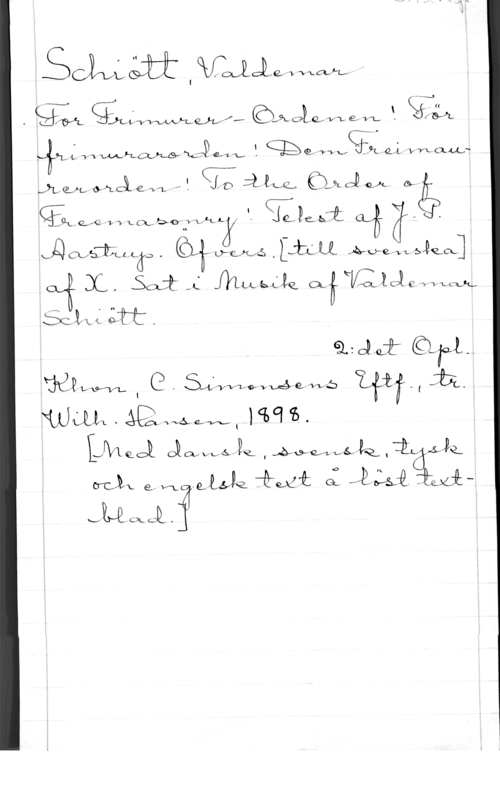 Schiött, Valdemar
For Frimurer-Ordenen! För
frimurarorden! Dem Freimau-
rerorden! To the Order of
Freemasonry! Tekst af J. P.
Aastrup. Öfvers. [till svenska]
af X. Sat i Musik af Valdemar
Schiött.
2:det Opl.
Khvn, C. Simonsens Eftf., tr.
Wilh. Hansen, 1898.
[Med dansk, svensk, tysk
och engelsk text å löst text-
blad.]